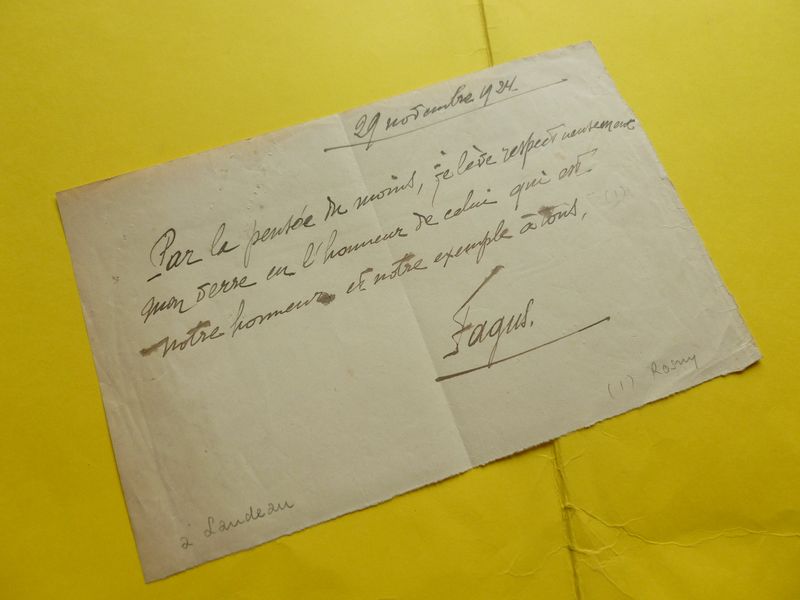 29 novembre 1924.
Par la pensée du moins, je lève respectueusement
mon verre en l'honneur de celui qui est (1)
notre honneur et notre exemple à tous.
Fagus.
(1) Rosny
à Landeau